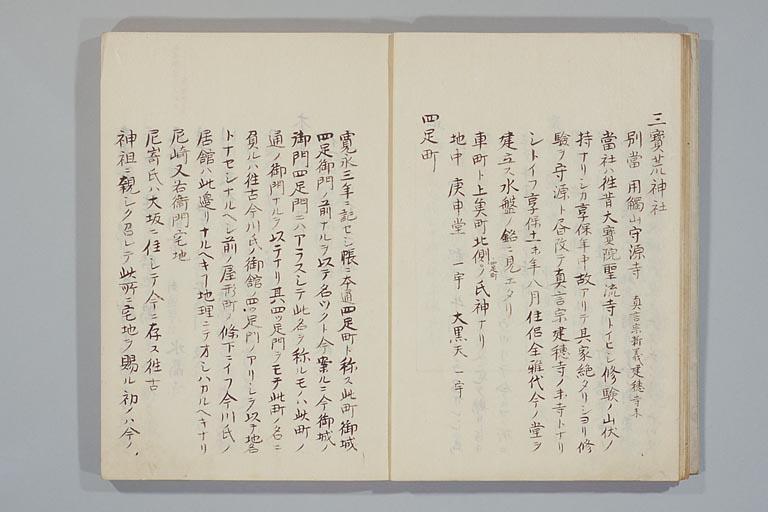 三寳荒神社
別當 用觸山守源寺 真言宗新義建穂寺末
當社ハ徃昔大寳院聖流寺トイヒシ修験ノ山伏ノ
持ナリシカ享保年中故アリテ其家絶タリシヨリ修
験ヲ守源ト啓改テ真言宗建穂寺ノ末寺トナリ
シトイフ享保十一年八月住侶全雅代今ノ堂ヲ
建立ス水盤ノ銘ニ見エタリ
車町ト上美町北側四足町ノ氏神ナリ
地中 庚申堂一宇 大黒天一宇
四足町
寛永三年ニ記セシ帳ニ本通四足町ト称ス此町御城
四足御門ノ前ナルヲ以テ名ツクト今案ルニ今御城ノ
御門四足門ニハアラスシテ此名ヲ称ルモノハ此町ノ
通ノ御門ナルヲ以テナリ其四ツ足門ヲモテ此町ノ名ニ
負ルハ徃古今川氏ノ御館ノ四ツ足門ノアリシヲ以テ地名
トナセシナルヘシ前ノ屋形町ノ條下ニイフ今川氏ノ
居館ハ此邊リナルヘキヲ地理ニテオシハカルヘキナリ
尼崎又右衛門宅地
尼嵜氏ハ大坂ニ住シテ今ニ存ス徃古
神祖ニ親シク召レテ此所ニ宅地ヲ賜ル初ノハ今ノ